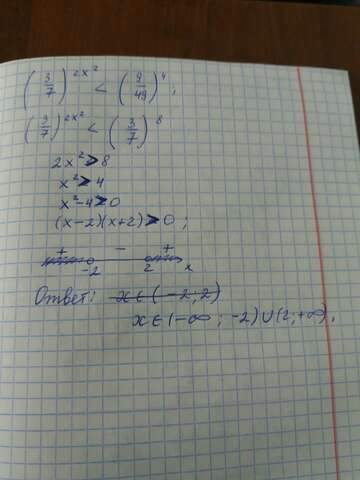 (3/7)^2x² < (9/49)^4 ;
(3/7)^2x² < (3/7)^8
2x² > 8
x² > 4
x² - 4 > 0
(x-2)(x+2) > 0 ;
+ - +
-2 2 x
Ответ: x ∈ (-2; 2)
x ∈ (-∞ ; -2) ∪ (2; +∞).